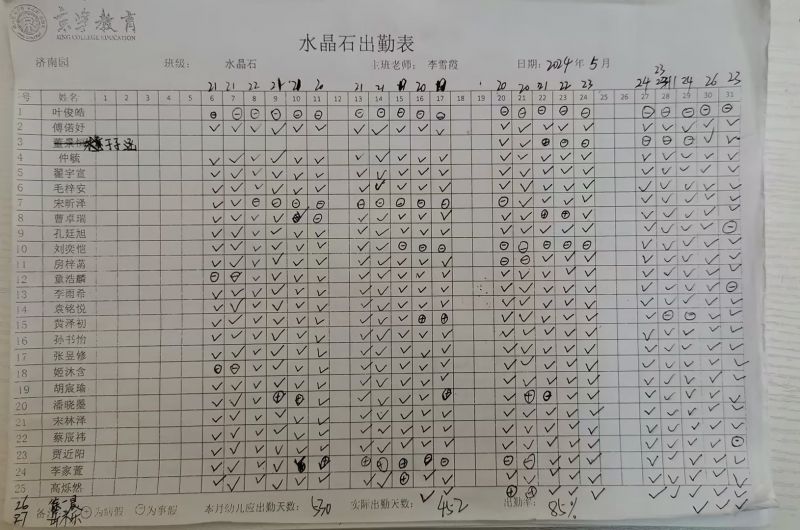 京学教育
KING COLLEGE EDUCATION
水晶石出勤表
济南园 班级: 水晶石 上班老师: 李雪霞 日期: 2024年5月
21 21 22 21 20 21 21 20 20 20 22 24 23 24 23 24 26 23
号 姓名 1 2 3 4 5 6 7 8 9 10 11 12 13 14 15 16 17 18 19 20 21 22 23 24 25 26 27 28 29 30 31
1 叶俊皓
2 傅偌好
3 于子涵
4 仲毓
5 翟宇宣
6 毛梓安
7 宋昕泽
8 曹卓瑞
9 孔廷旭
10 刘奕恺
11 房梓菡
12 童浩麟
13 李雨希
14 袁铭悦
15 黄泽初
16 孙书怡
17 张昱修
18 姬沐含
19 胡宸瑜
20 潘晓墨
21 宋林泽
22 蔡辰祎
23 贾近阳
24 李家萱
25 高烁然
26
27
备 ⊕为病假 ⊖为事假 本月幼儿应出勤天数: 530 实际出勤天数: 452 出勤率: 85%